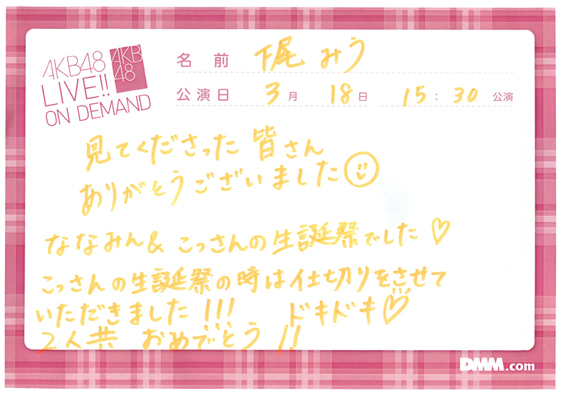 AKB48
LIVE!!
ON DEMAND
AKB
48
名 前 下尾 みう
公演日 3月 18日 15:30 公演
見てくださった 皆さん
ありがとうございました
ななみん& こっさんの生誕祭でした♡
こっさんの生誕祭の時は仕切りをさせて
いただきました!!! ドキドキ♡
2人共 おめでとう!!
DMM.com